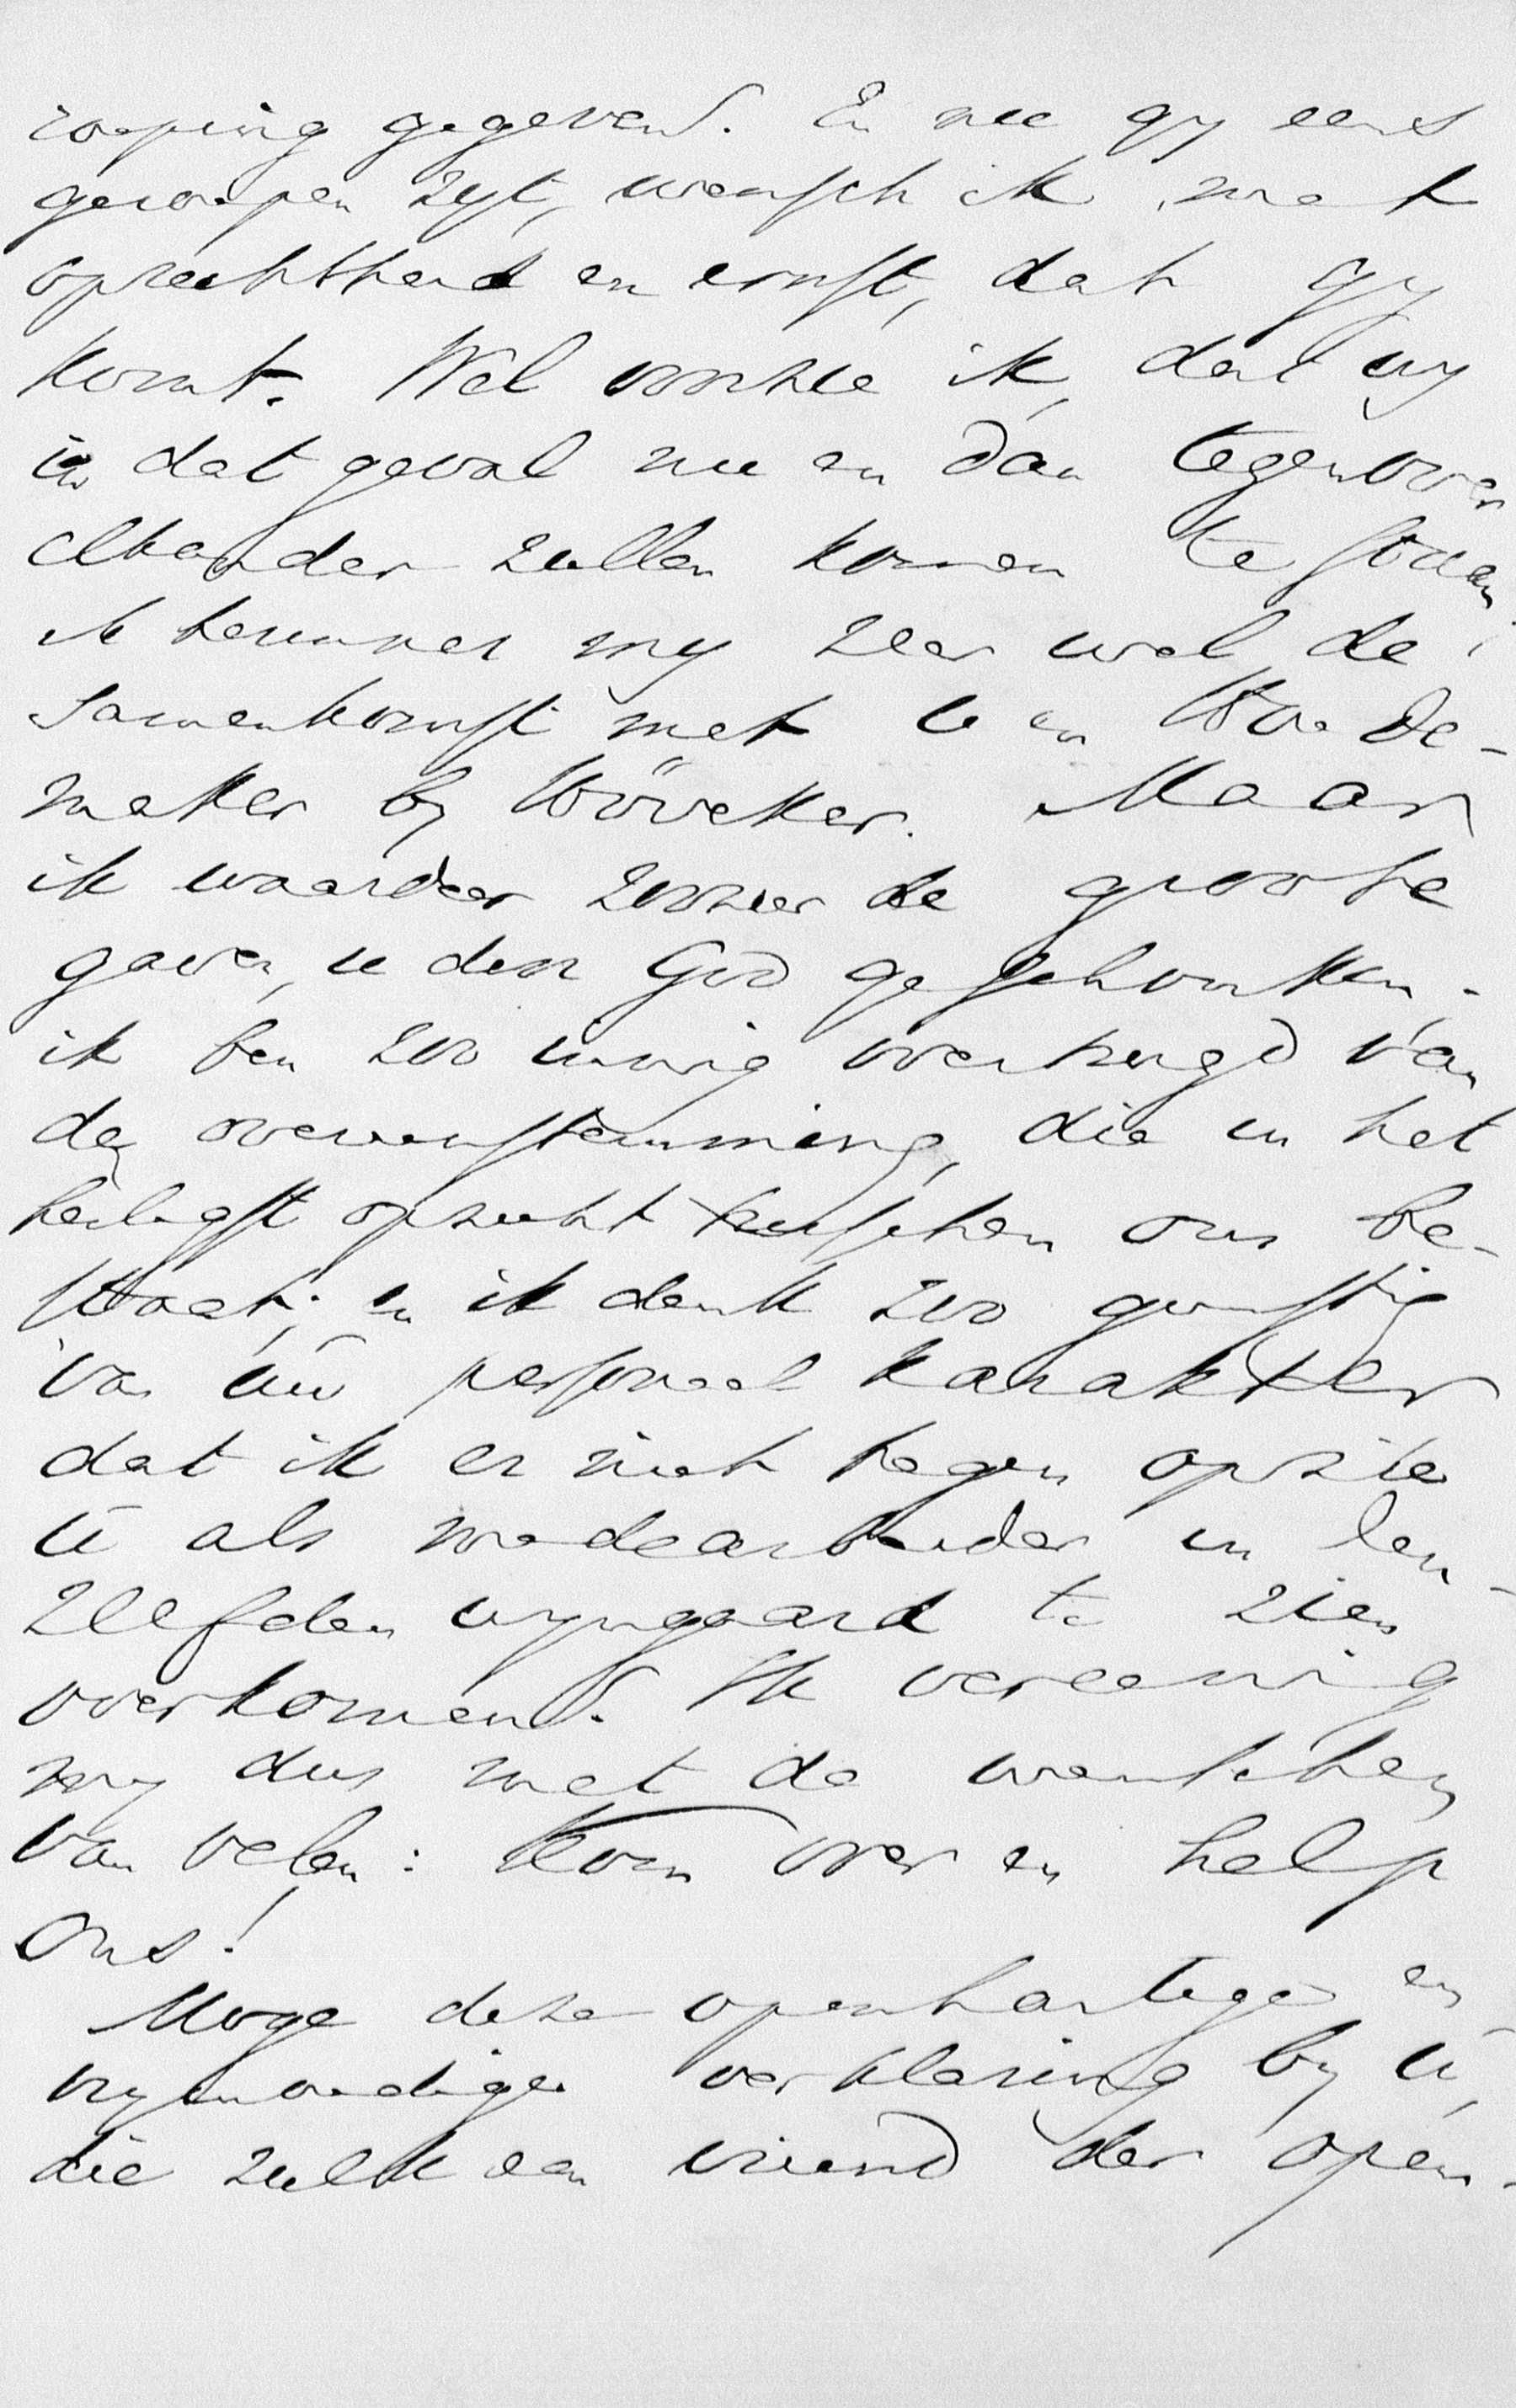 roeping gegeven. En nu gy eens
geroepen zyt, wensch ik met
oprechtheid en ernst, dat gy
komt. Wel voorzie ik, dat wy
in dat geval nu en dan tegenover
elkander zullen komen te staan;
ik herinner my zeer wel de
samenkomst met u en Hoede-
maker by Höveker. Maar
ik waardeer zoozeer de groote
gaven, u door God geschonken.
ik ben zoo innig overtuigd van
de overeenstemming, die in het
heiligst opzicht tusschen ons be-
staat; en ik denk zoo gunstig
van uw personeel karakter
dat ik er niet tegen opzie
u als medearbeider in den-
zelfden wyngaard te zien
overkomen. Ik vereenig
my dus met de wenschen
van velen: Kom over en help
ons!
Moge deze openhartige en
vrymoedige verklaring by u,
die zulk een vriend der open-